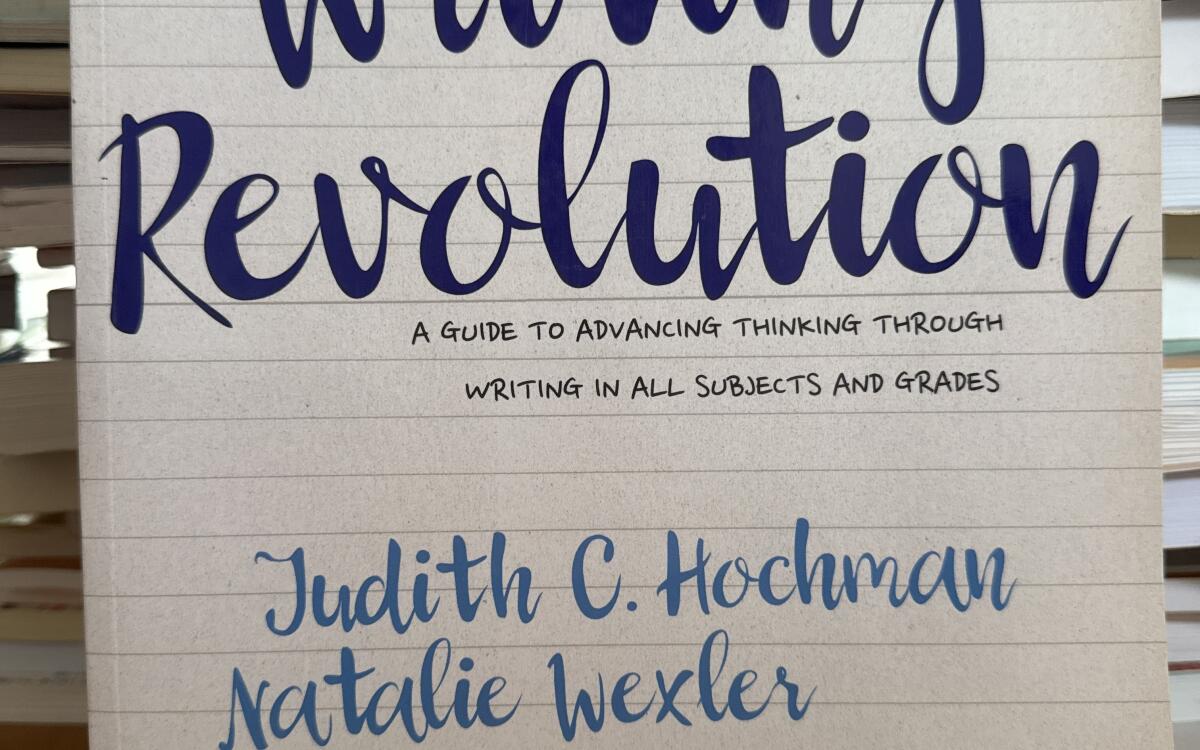 Writing
Revolution
A GUIDE TO ADVANCING THINKING THROUGH
WRITING IN ALL SUBJECTS AND GRADES
Judith C. Hochman
Natalie Wexler